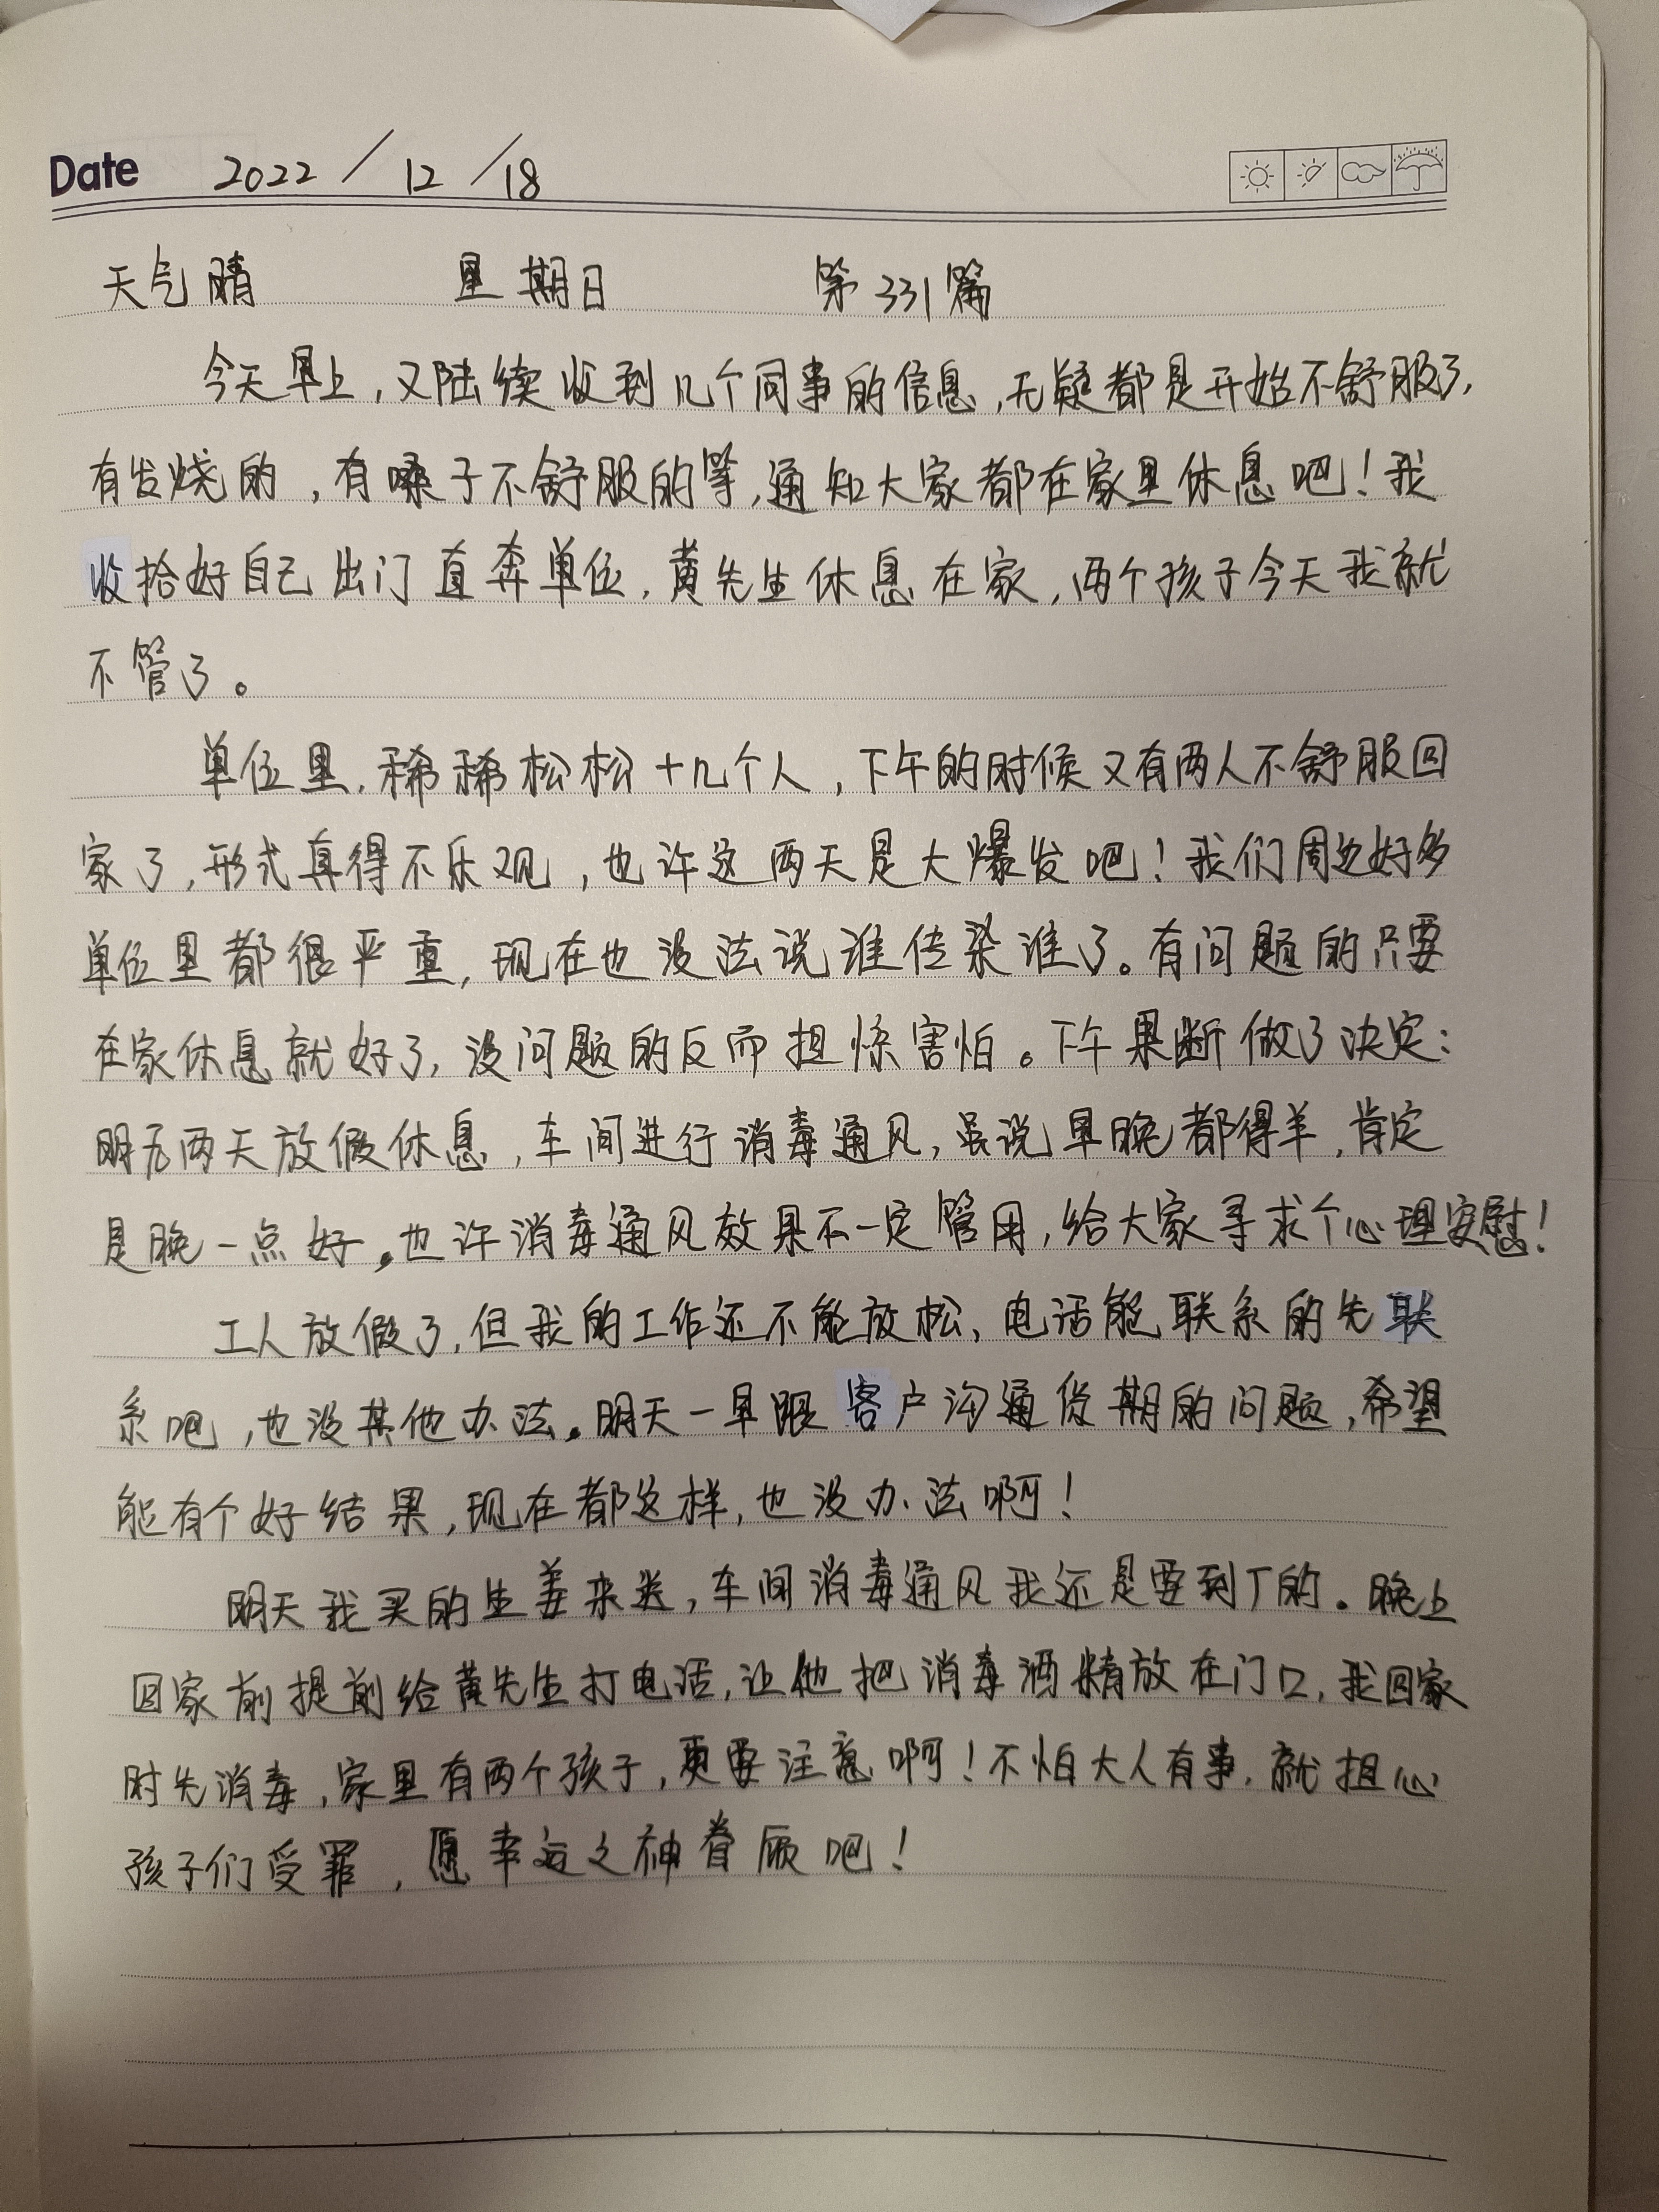 Date 2022 / 12 / 18
天气晴 星期日 第331篇
今天早上，又陆续收到几个同事的信息，无疑都是开始不舒服了，
有发烧的，有嗓子不舒服的等，通知大家都在家里休息吧！我
收拾好自己出门直奔单位，黄先生休息在家，两个孩子今天我就
不管了。
单位里，稀稀松松十几个人，下午的时候又有两人不舒服回
家了，形式真得不乐观，也许这两天是大爆发吧！我们周边好多
单位里都很严重，现在也没法说谁传染谁了。有问题的只要
在家休息就好了，没问题的反而担惊害怕。下午果断做了决定：
明后两天放假休息，车间进行消毒通风，虽说早晚都得羊，肯定
是晚一点好。也许消毒通风效果不一定管用，给大家寻求个心理安慰！
工人放假了，但我的工作还不能放松，电话能联系的先联
系吧，也没其他办法。明天一早跟客户沟通货期的问题，希望
能有个好结果，现在都这样，也没办法啊！
明天我买的生姜来送，车间消毒通风我还是要到厂的。晚上
回家前提前给黄先生打电话，让他把消毒酒精放在门口，我回家
时先消毒，家里有两个孩子，更要注意啊！不怕大人有事，就担心
孩子们受罪，愿幸运之神眷顾吧！